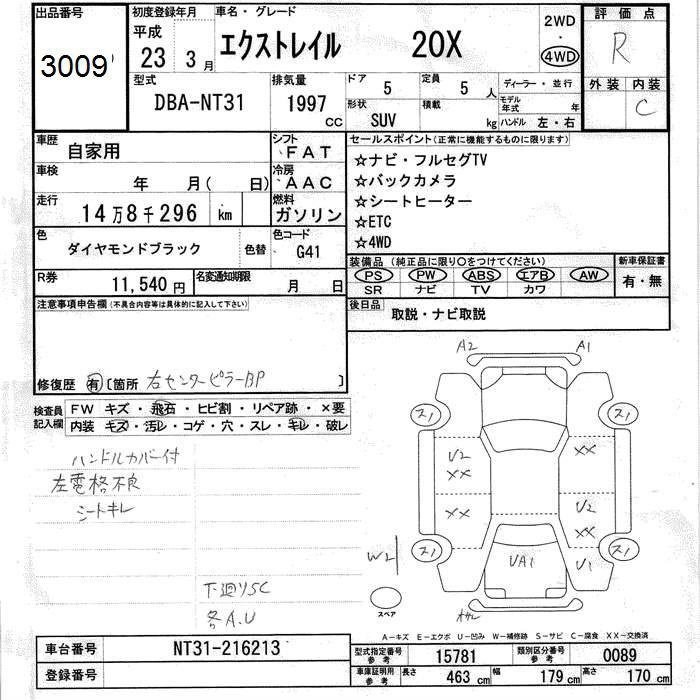 出品番号 初度登録年月 車名・グレード 2WD ・ 4WD 評価点
3009 平成 23年 3月 エクストレイル 20X R
型式 排気量 ドア 5 定員 5人 ディーラー・並行 外装 内装
DBA-NT31 1997cc 形状 SUV 積載 kg モデル年式 年 ハンドル 左・右 C
車歴 自家用 シフト FAT セールスポイント(正常に機能するものに限ります)
車検 年 月( 日) 冷房 AAC ☆ナビ・フルセグTV
☆バックカメラ
走行 14万8千296 km 燃料 ガソリン ☆シートヒーター
☆ETC
色 ダイヤモンドブラック 色替 色コード G41 ☆4WD
装備品(純正品に限り〇をつけてください) 新車保証書
R券 11,540円 名変通知期限 月 日 PS PW ABS エアB AW 有・無
SR ナビ TV カワ
注意事項申告欄(不具合内容等は具体的に記入して下さい) 後日品 取説・ナビ取説
修復歴 有〔箇所 右センターピラーBP 〕
検査員記入欄 FW キズ・飛石・ヒビ割・リペア跡・×要
内装 キズ・汚レ・コゲ・穴・スレ・キレ・破レ
ハンドルカバー付
左電格不良
シートキレ
下廻りSC
各A.U
A2 A1
スノ スノ
U2 XX
XX U2
XX XX
スノ スノ
W2 UA1 U1
スペア
A-キズ E-エクボ U-凹み W-補修跡 S-サビ C-腐食 XX-交換済
車台番号 NT31-216213 型式指定番号 参考 15781 類別区分番号 参考 0089
登録番号 車庫証明用 参考 長さ 463cm 幅 179cm 高さ 170cm